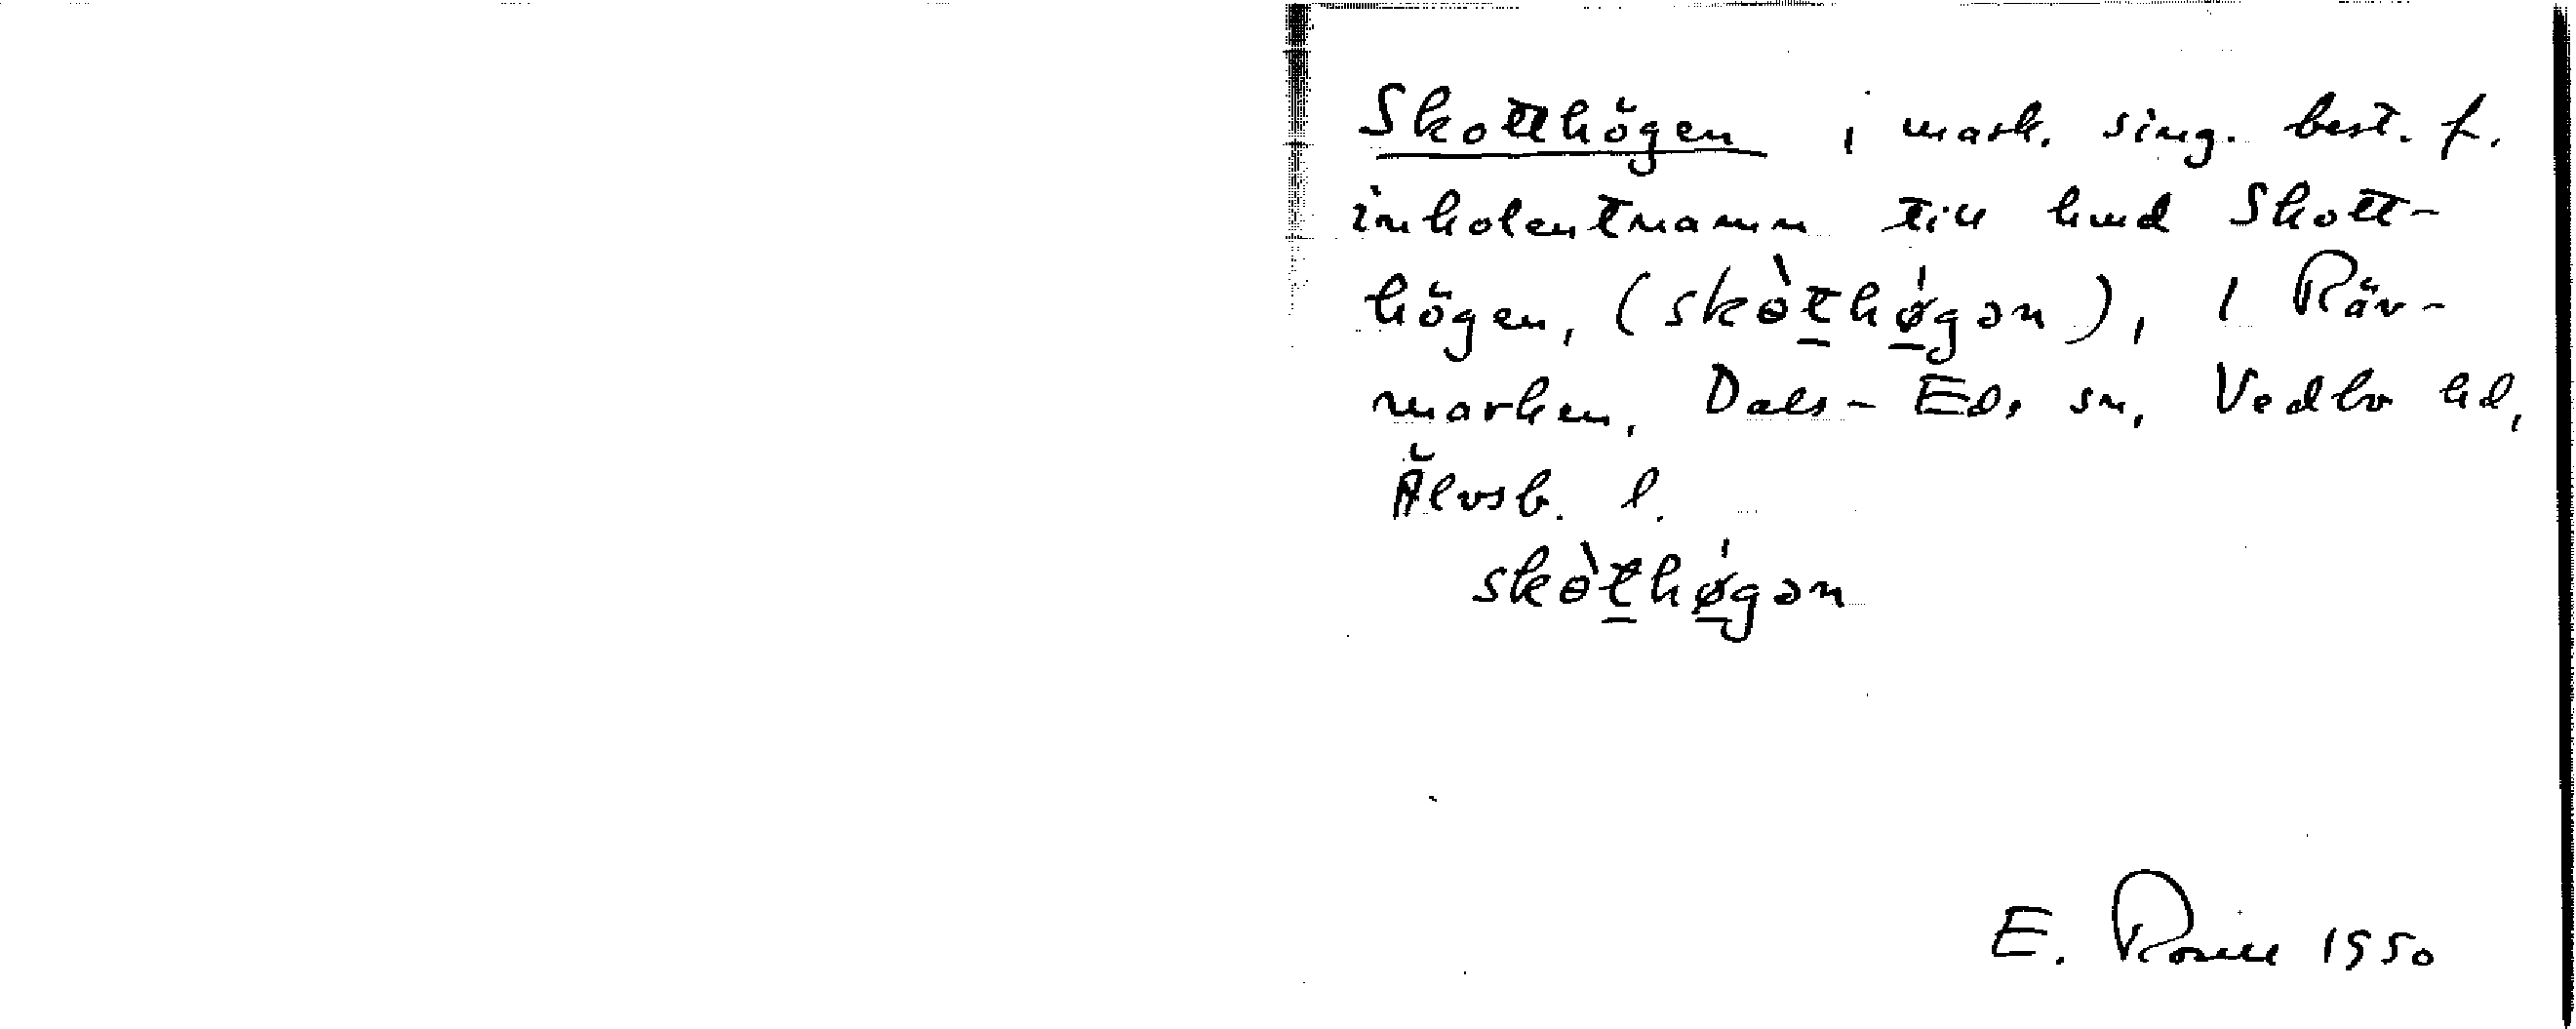 Skotthögen , mask. sing. best. f.
inkolentnamn till hmd Skott-
högen, (skɵ̀t̠hǿ̠gən), 1 Räv-
marken, Dals-Eds sn, Vedbo hd,
Älvsb. l.
skɵ̀t̠hǿ̠gən
E. Rosell 1950